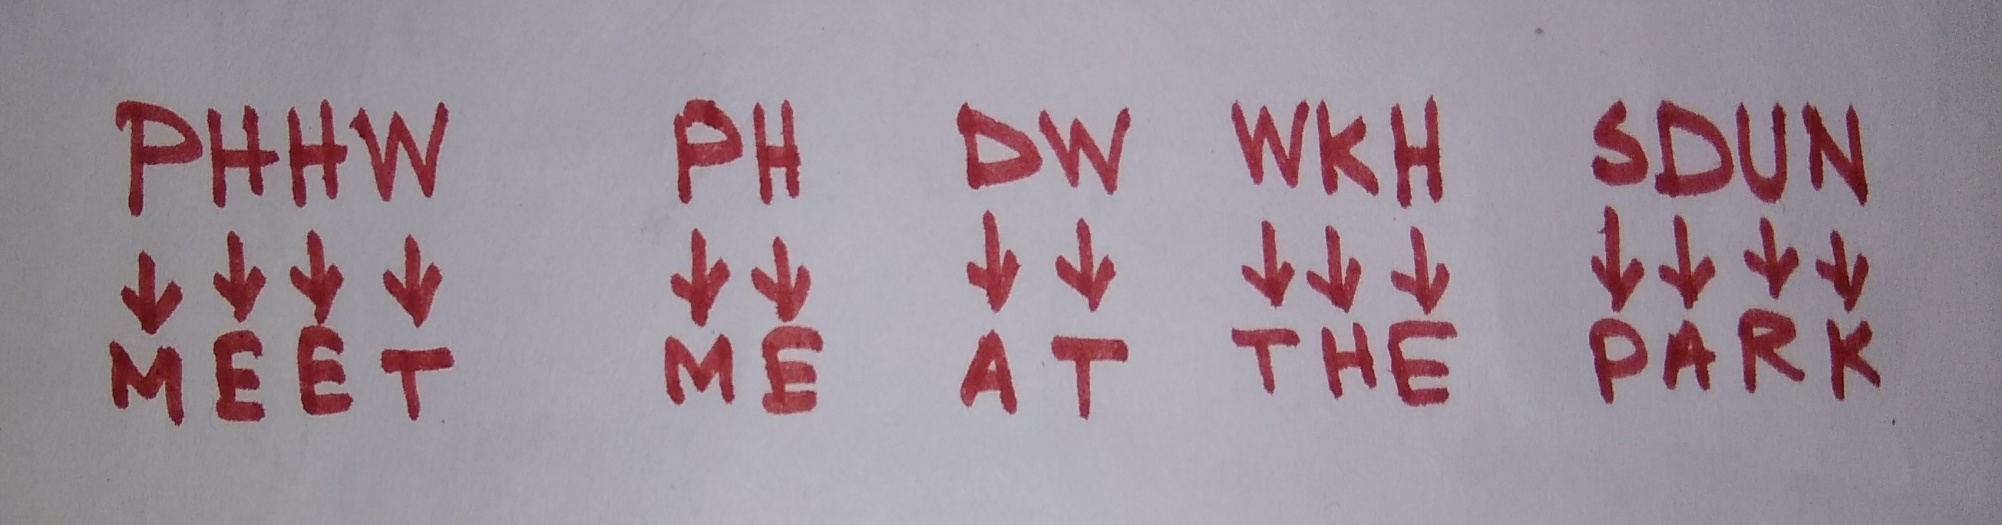 PHHW PH DW WKH SDUN
↓↓↓↓ ↓↓ ↓↓ ↓↓↓ ↓↓↓↓
MEET ME AT THE PARK